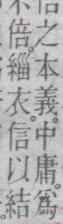 信之本義。中庸。爲
不倍。緇衣。信以結